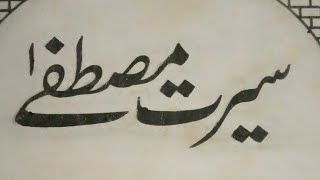 سیرت مصطفیٰ